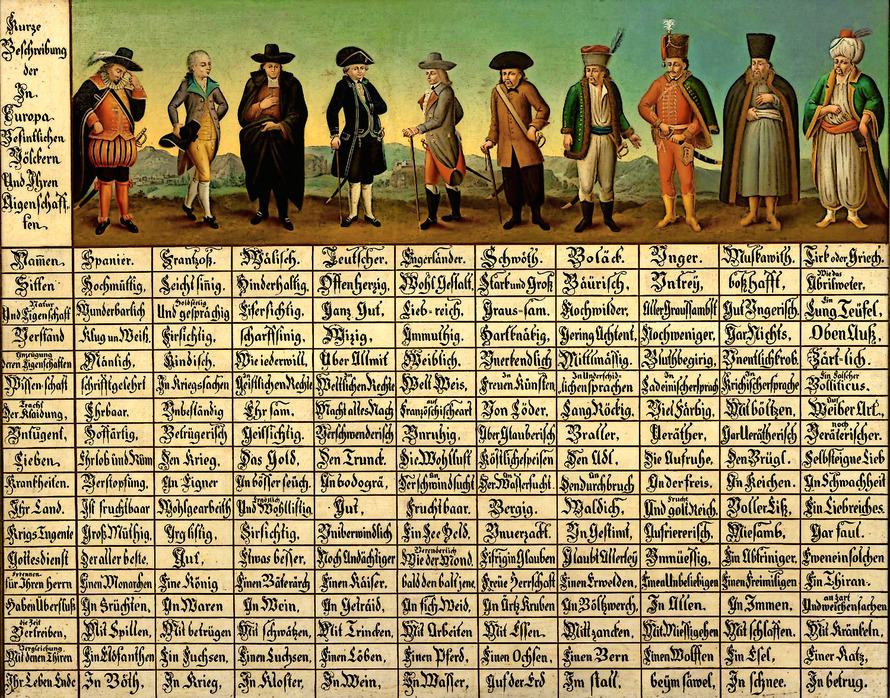 Kurze
Beschreibung
der
In
Europa
Befintlichen
Völckern
Und Ihren
Aigenschaff-
ten.
Namen. Spanier. Frantzoß. Wälisch. Teutscher. Engerländer. Schwöth. Boläck. Unger. Muskawith. Tirk oder Griech.
Sitten Hochmüttig, Leicht sinig. Hinderhaltig, Offenherzig, Wohl Gestalt, Stark und Groß Bäurisch, Untrey, boßhafft, Wie das Abrilweter,
Natur Und Eigenschaft Wunderbarlich Holdseelig Und gesprächig Eifersichtig, Ganz Gut, Lieb-reich, Graus-sam, Nochwilder, Aller Graussambst Gut Ungerisch, Ein Lung Teüfel,
Verstand Klug un Weiß, Firsichtig, scharffsinig, Wizig, Ammuthig, Hartknäkig, Gering Achtent, Nochweniger, Gar Nichts, Oben Auß,
Anzeügung deren Eigenschaften Mänlich, Kindisch, Wie iederwill, Über Allmit Weiblich, Unerkendlich Mittlmässig, Bluthbegirig, Unentlichkrob, Zärt-lich,
Wissenschaft schrifftgelehrt In Kriegssachen In Geistlichen Rechte In Weltlichen Rechte Welt Weis, In Freuen Künsten, In Underschid-lichen sprachen In Ladeinischersprach In Krichischersprache Ein Falscher Bolliticus.
Tracht Der Klaidung, Ehrbaar. Unbeständig Ehrsam. Macht alles Nach auf Französchischeart Von Löder, Lang Röckig, Viel Färbig, Mit böltzen, auf Weiber Art,
Untugent, Hoffärtig, Betrügerisch Geilsichtig, Verschwenderisch Unruhig, Über Glauberisch Braller, Veräther, Gar Verätherisch noch Veräterischer.
Lieben. Ehrlob und Rüm Den Krieg, Das Gold, Den Trunck, Die Wohllust Köstlichespeisen Den Adl, Die Aufruhe, Den Brügl, Selbsteigne Lieb
Krankheiten. Verstopfung, An Eigner An bösser seüch, An bodogrä, An Der schwindsucht An Der Wassersucht. An Dendurchbruch An der freis. An Keichen. An Schwachheit
Ihr Land. Ist fruchtbaar Wohlgearbeith Ergötzlich Und Wohllistig Gut, Fruchtbaar. Bergig, Waldich, Frucht Und golt Reich. Voller Eiß, Ein Liebreiches.
Krigs Tugente Groß Müthig, Arglistig, Firsichtig, Uniberwindlich Ein See Held. Unverzackt. Un Gestimt, Aufriererisch, Miesamb, Gar faul.
Gottesdienst Der aller beste. Gut, Etwas besser, Noch Andächtiger Verenderlich Wie der Mond, Eifrig in Glauben Glaubt Allerley Unmüessig, Ein Abtriniger, Eweneinsolchen
Erkennen für Ihren Herrn Einen Monarchen Eine König Einen Bäterärch Einen Käiser. bald den balt jene, Freüe Herrschaft Einen Erwelden, Einen Unbeliebigen Einen Freimilligen Ein Thiran.
Haben Überfluß In Früchten, In Waren In Wein, In Geträid, In fich Weid, In Ärtz Kruben In Böltzwerch, In Allen. In Immen, An zart Und weichen sachen.
die Zeit Vertreiben, Mit Spillen, Mit betrügen Mit schwätzen, Mit Trincken, Mit Arbeiten Mit Essen. Mit zancken, Mit Miessigehen Mit schlaffen. Mit Kränkeln,
Vergleichung Mit denen Thiren Ein Elofanthen Ein Fuchsen, Einen Luchsen, Einen Löben, Einen Pferd, Einen Ochsen, Einen Bern Einen Wolffen Ein Esel, Einer Katz,
Ihr Leben Ende In Böth, In Krieg, In Kloster, In Wein, In Wasser, Auf der Erd Im stall. beym säwel, In schnee. In betrug.